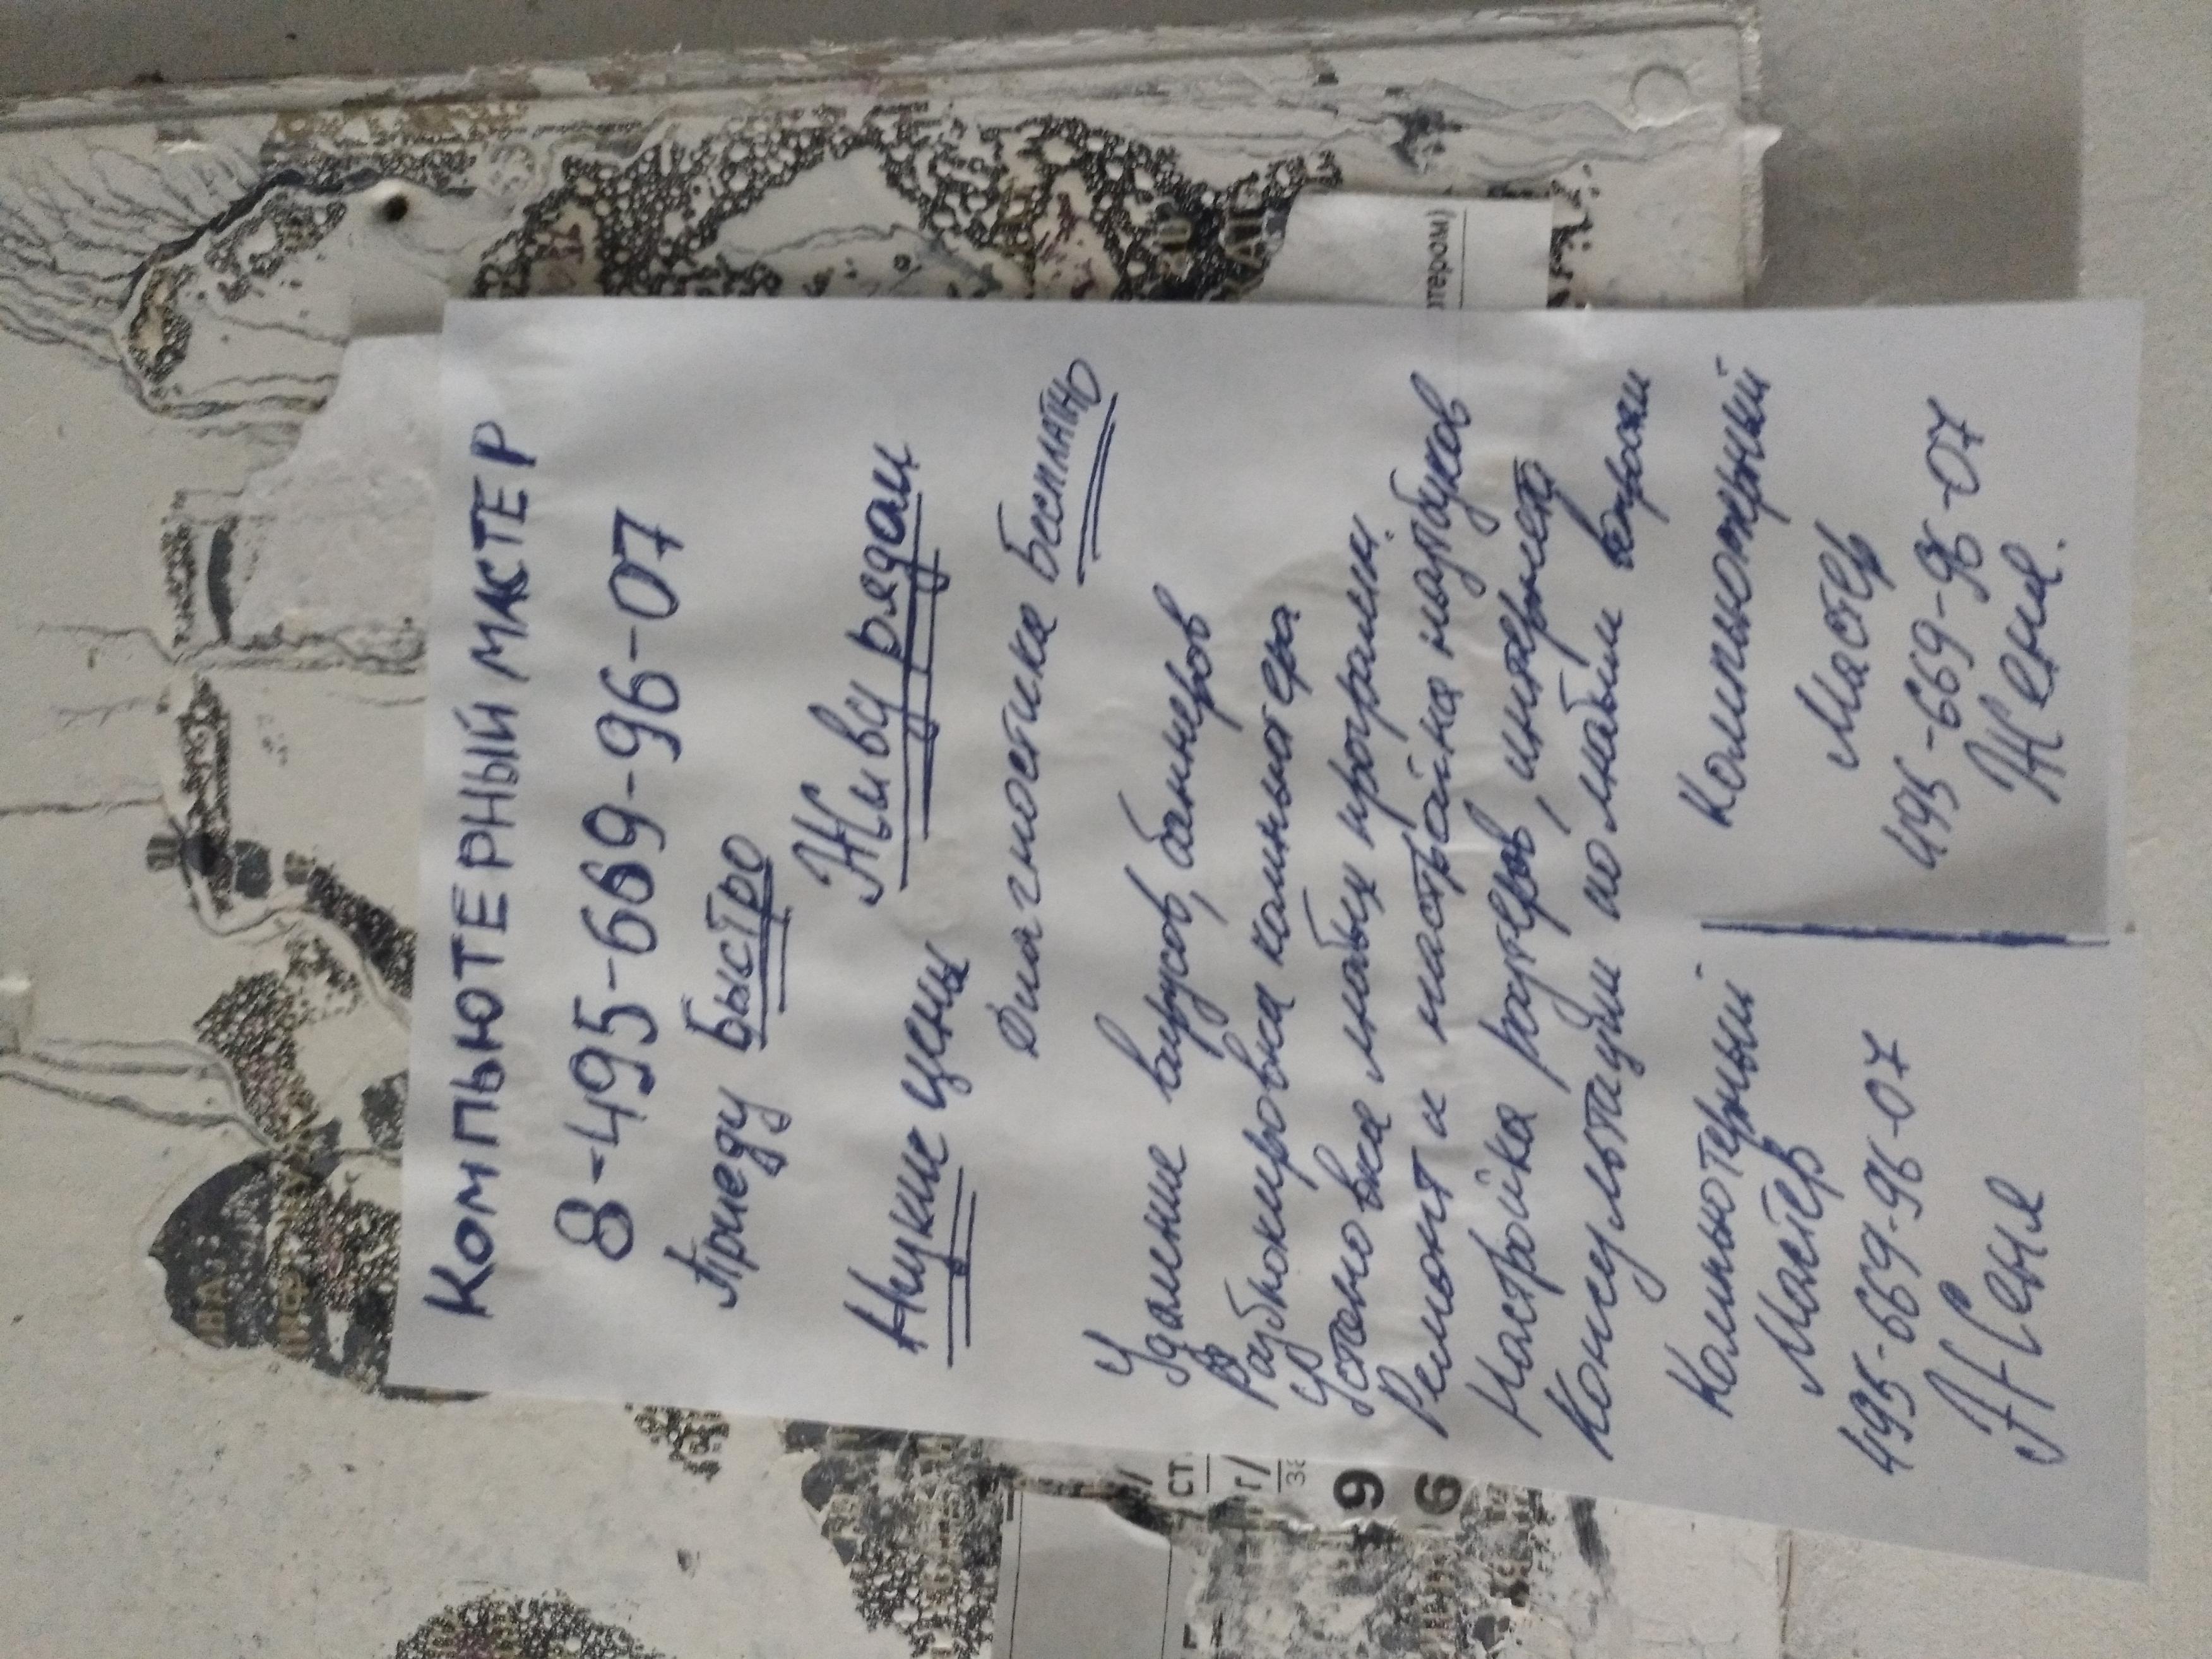 КОМПЬЮТЕРНЫЙ МАСТЕР
8-495-669-96-07
Приеду Быстро
Живу рядом
Низкие цены
Диагностика Бесплатно
Удаление вирусов, баннеров
Разблокировка компьютера
Установка любых программ.
Ремонт и настройка ноутбуков
Настройка роутеров, интернета
Консультации по любым вопросам
Компьютерный
Мастер
495-669-96-07
Женя
Компьютерный
Мастер
495-669-96-07
Женя.
ютером)
СТ
г/
9
6